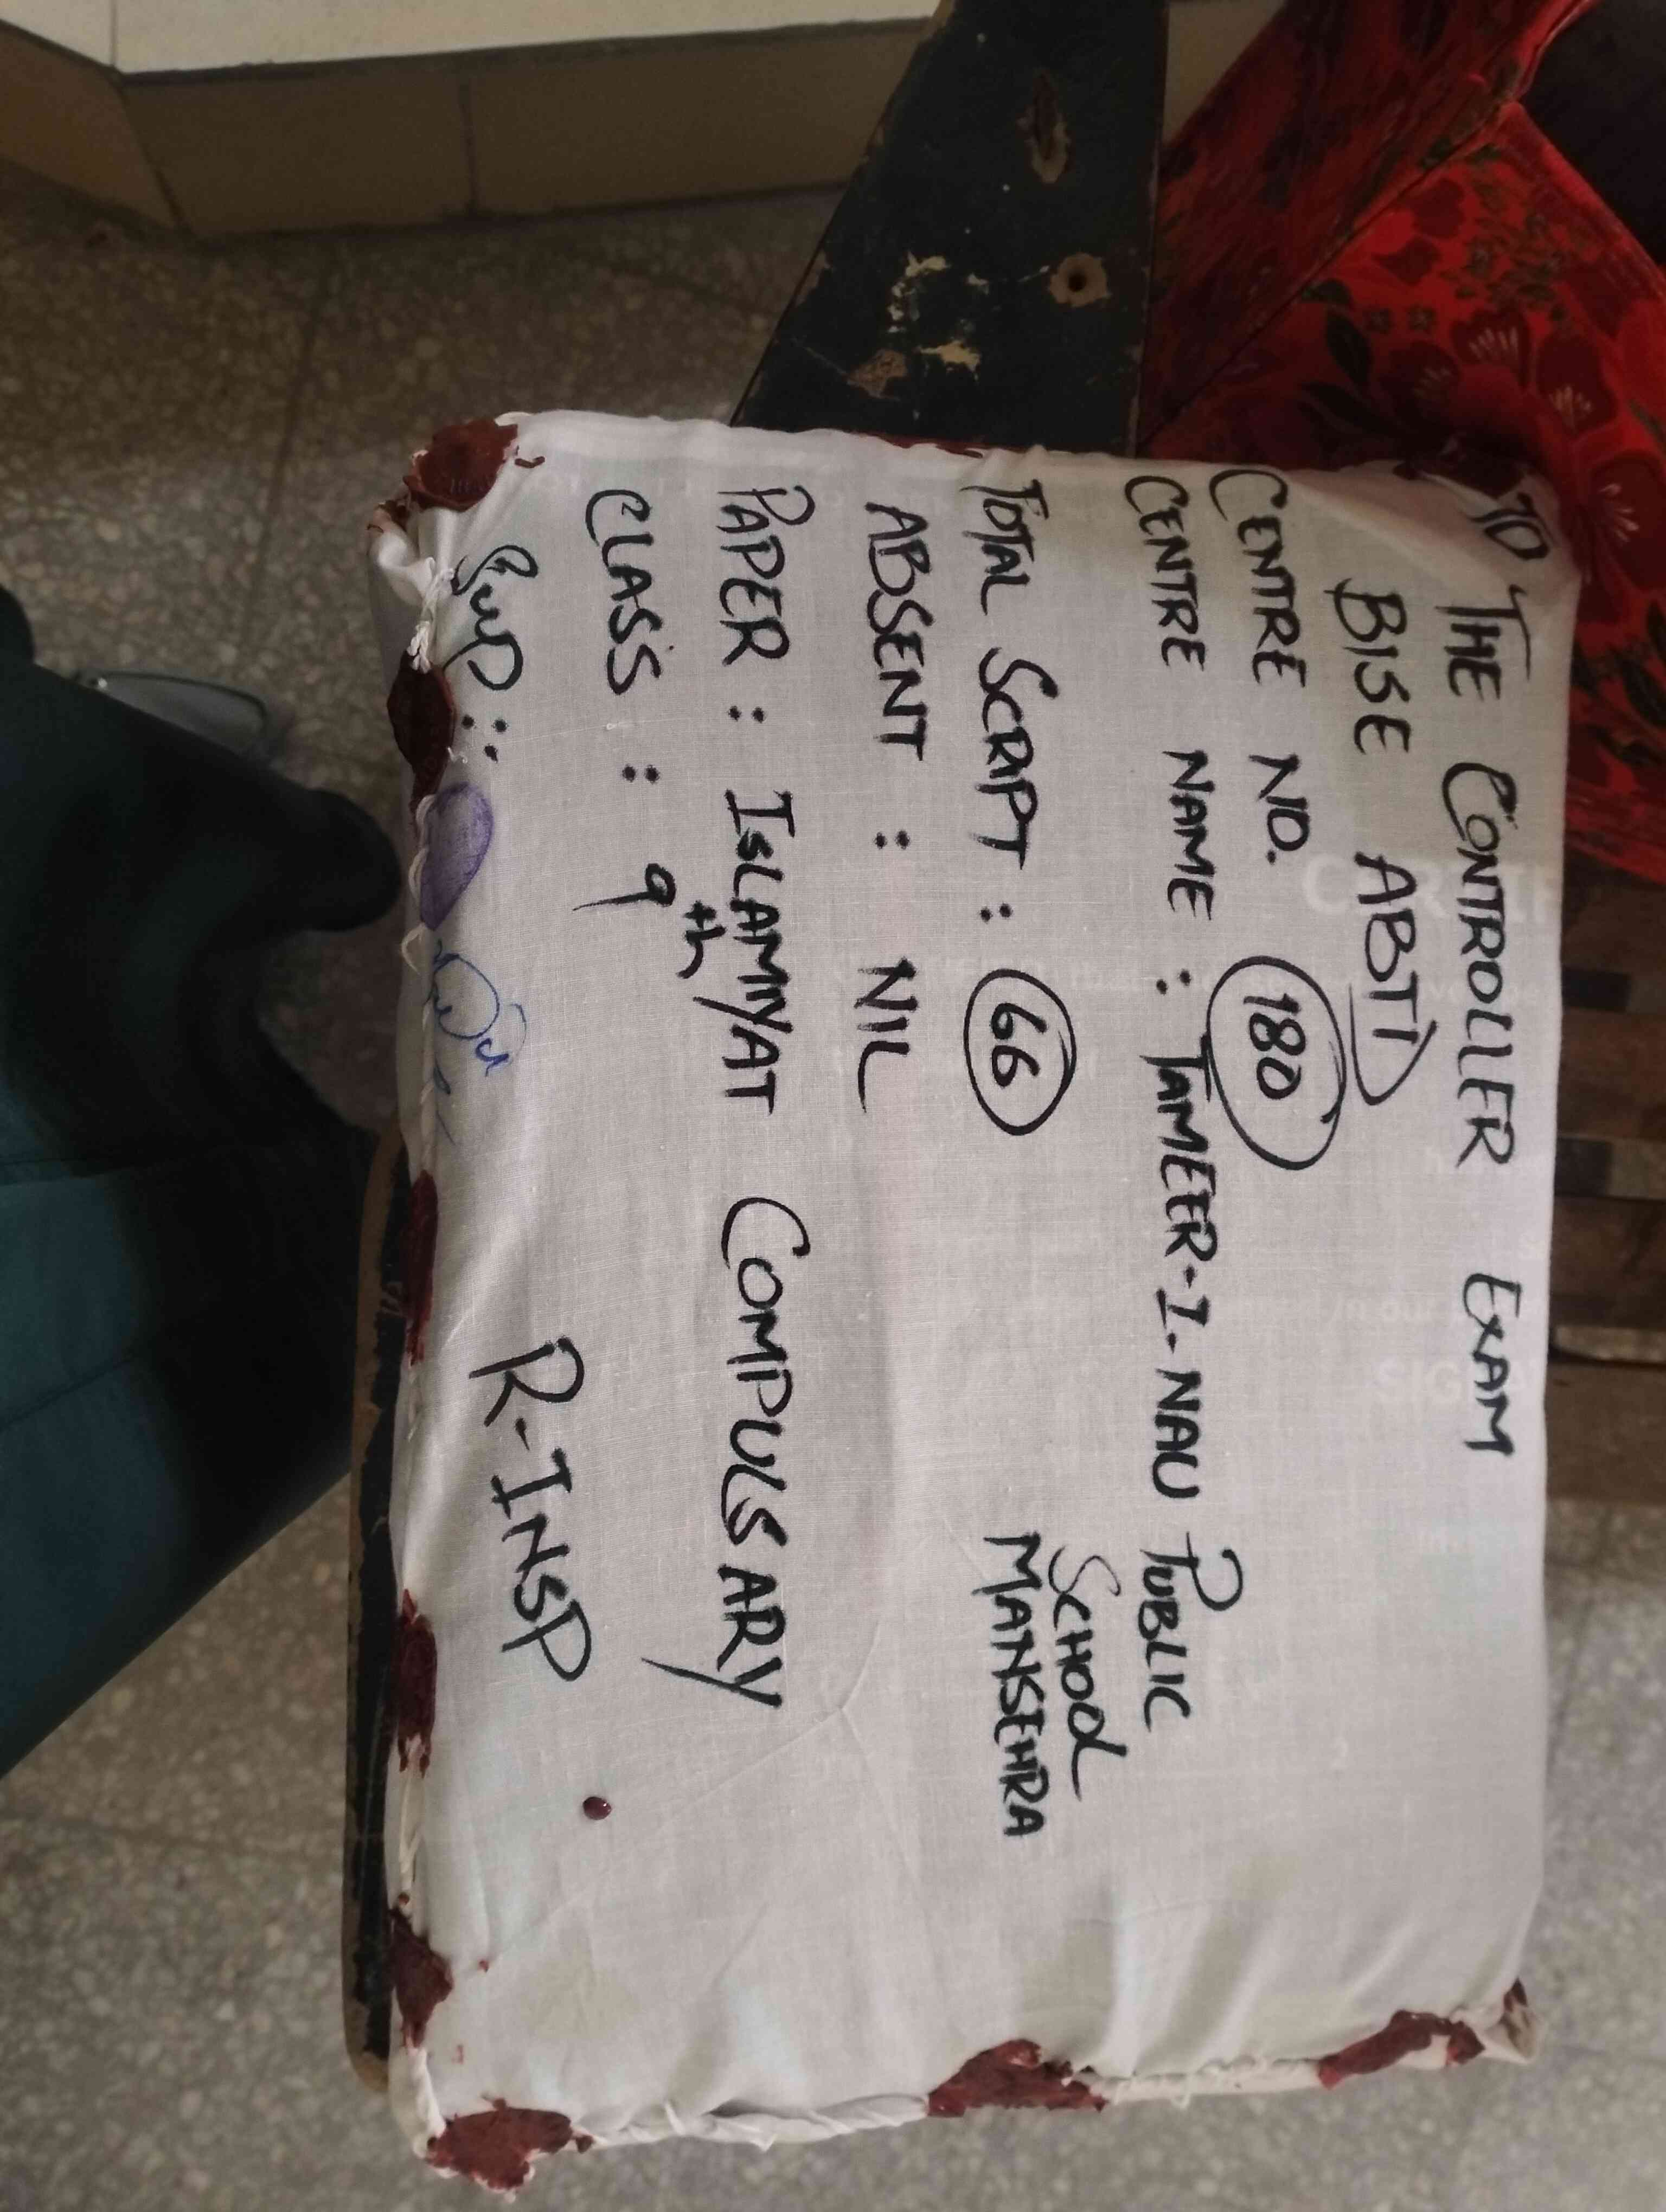 TO THE CONTROLLER EXAM
BISE ABTD
CENTRE NO. 180
CENTRE NAME : TAMEER-I-NAU PUBLIC
SCHOOL
MANSEHRA
TOTAL SCRIPT : 66
ABSENT : NIL
PAPER : ISLAMIYAT COMPULSARY
CLASS : 9th
Sup :
R-INSP